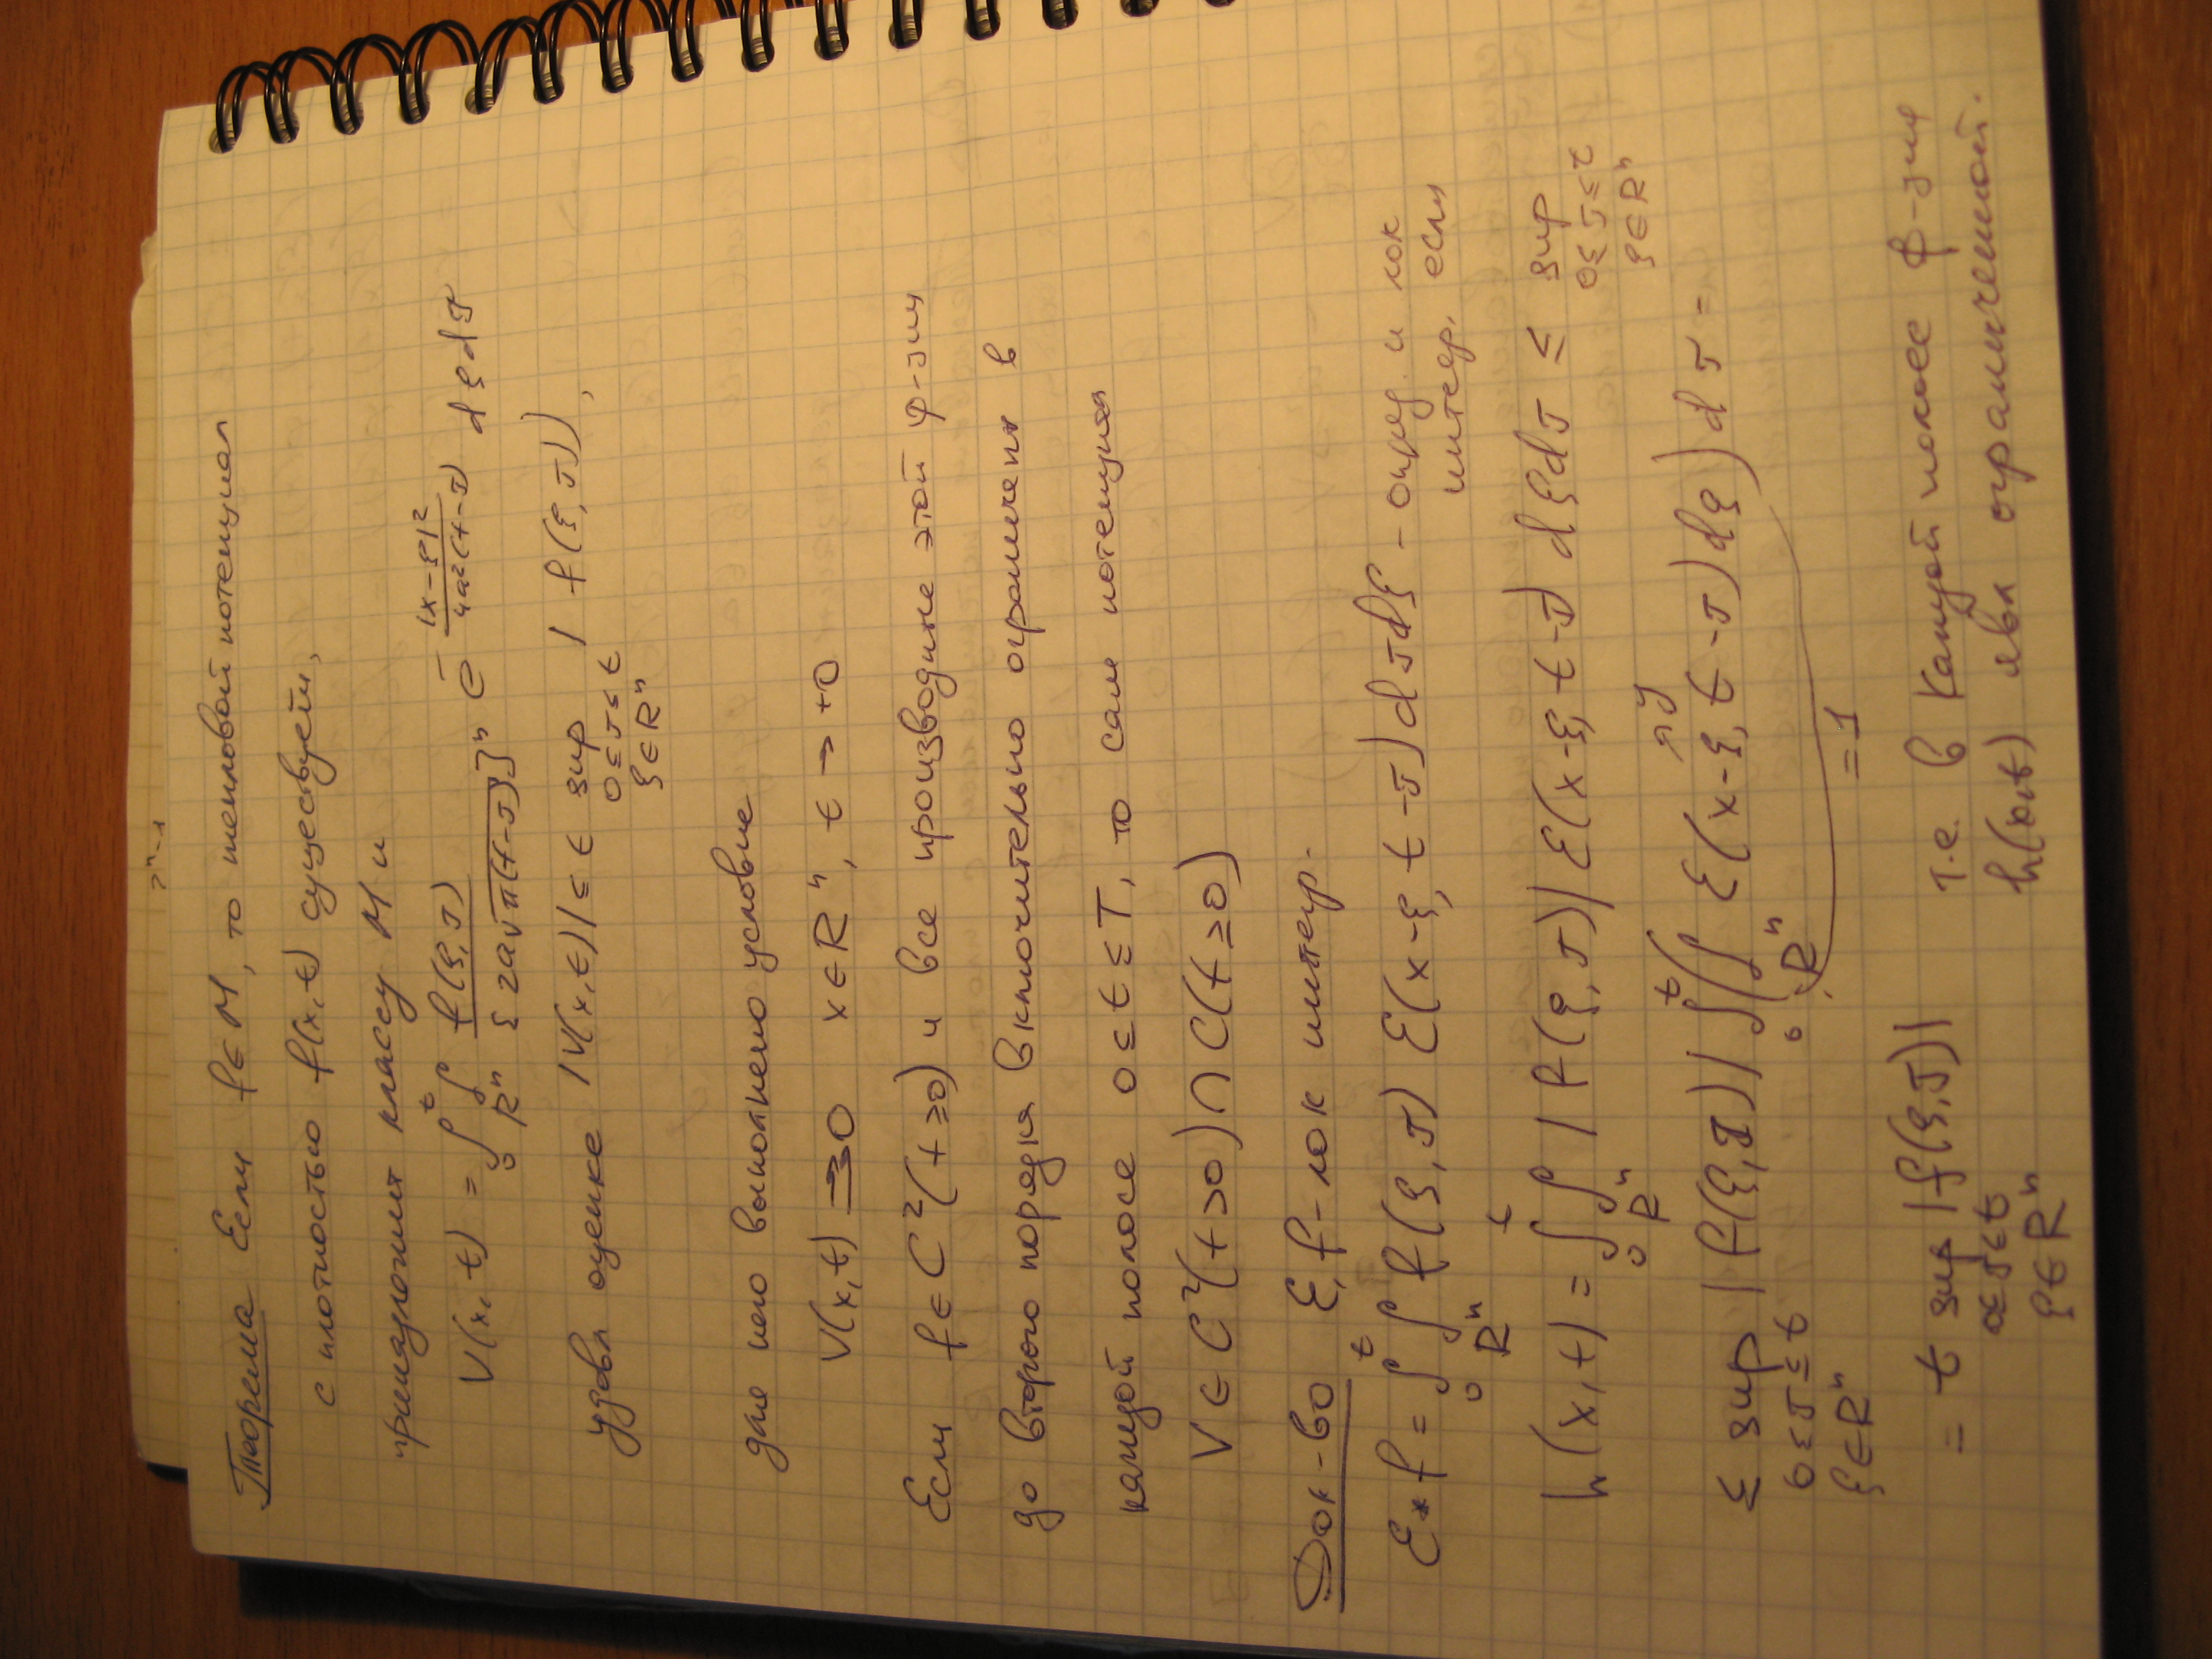 Теорема Если f ∈ M, то тепловой потенциал
с плотностью f(x,t) существует,
принадлежит классу M и
V(x,t) = ∫₀ᵗ ∫_{Rⁿ} f(ξ,τ) / [2a√π(t-τ)]ⁿ e^{-|x-ξ|²/4a²(t-τ)} dξdτ
удовл оценке |V(x,t)| ≤ t sup | f(ξ,τ)|,
0≤τ≤t
ξ∈Rⁿ
для него выполнено условие
V(x,t) ⇉ 0 x∈Rⁿ, t → +0
Если f ∈ C²(t≥0) и все производные этой ф-ции
до второго порядка включительно ограничены в
каждой полосе 0≤t≤T, то сам потенциал
V ∈ C²(t>0) ∩ C(t≥0)
Док-во ℰ, f - лок интегр.
ℰ*f = ∫₀ᵗ ∫_{Rⁿ} f(ξ,τ) ℰ(x-ξ, t-τ)dτdξ - опред. и лок
интегр, если
h(x,t) = ∫₀ᵗ ∫_{Rⁿ} | f(ξ,τ)| ℰ(x-ξ, t-τ) dξdτ ≤ sup
0≤τ≤t
ξ∈Rⁿ
≤ sup | f(ξ,τ)| ∫₀ᵗ(∫_{Rⁿ} ℰ(x-ξ, t-τ)dξ)dτ =
0≤τ≤t
ξ∈Rⁿ
=1
= t sup |f(ξ,τ)| т.е. в каждой полосе ф-ция
0≤τ≤t h(x,t) явл ограниченной.
ξ∈Rⁿ